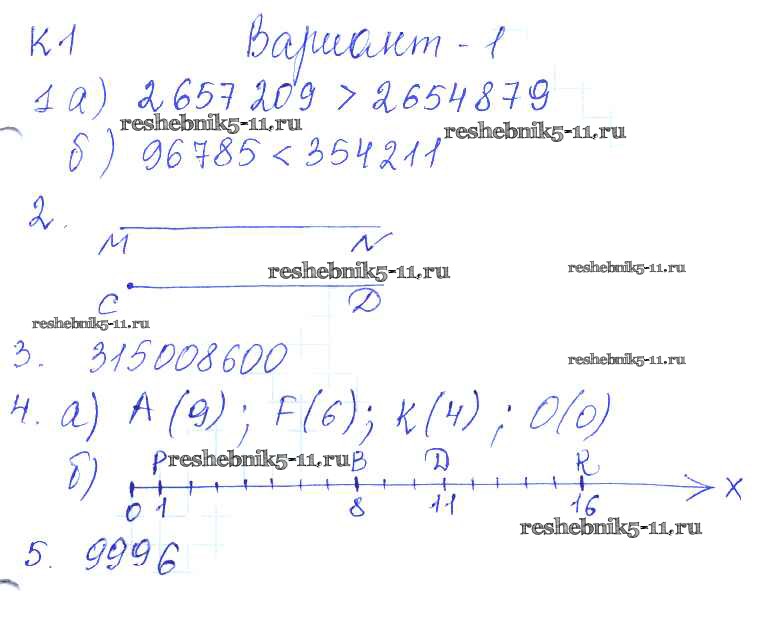 К1 Вариант - 1
1 а) 2657 209 > 2654879
reshebnik5-11.ru
reshebnik5-11.ru
б) 96785 < 354211
2.
M N
reshebnik5-11.ru
reshebnik5-11.ru
C D
reshebnik5-11.ru
3. 315008600
reshebnik5-11.ru
4. а) A (9); F(6); K(4); O(0)
б) P B D R
reshebnik5-11.ru
x
0 1 8 11 16
reshebnik5-11.ru
5. 9996